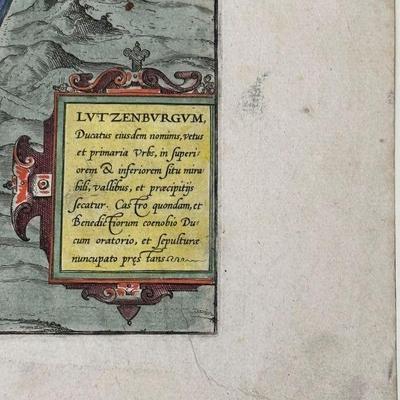 LVTZENBVRGVM,
Ducatus eiusdem nominis, vetus
et primaria Vrbs, in superi-
orem & inferiorem situ mira
bili, vallibus, et præcipitijs
secatur. Castro quondam, et
Benedictiorum coenobio Du-
cum oratorio, et sepulturæ
nuncupato præstans